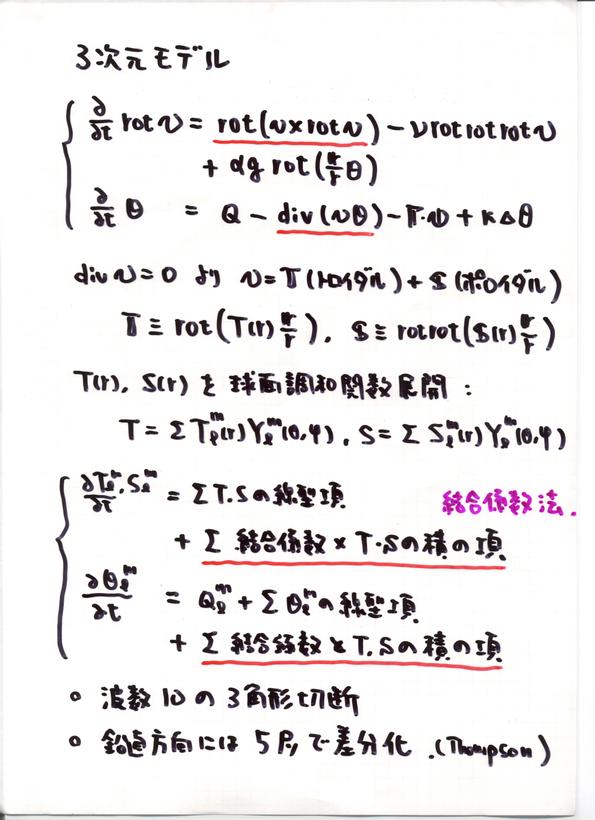 3次元モデル
∂/∂t rot v = rot(v×rot v) − ν rot rot rot v
+ αg rot(r/r θ)
∂/∂t θ = Q − div(vθ) − Γ·v + κΔθ
div v = 0 より v = T (トロイダル) + S (ポロイダル)
T ≡ rot(T(r) r/r), S ≡ rot rot(S(r) r/r)
T(r), S(r) を 球面調和関数展開:
T = Σ Tₗᵐ(r) Yₗᵐ(θ,φ), S = Σ Sₗᵐ(r) Yₗᵐ(θ,φ)
∂Tₗᵐ,Sₗᵐ/∂t = Σ T.Sの線型項
結合係数法.
+ Σ 結合係数 × T·Sの積の項
∂θₗᵐ/∂t = Qₗᵐ + Σ θₗᵐの線型項
+ Σ 結合係数 × T.Sの積の項
○ 波数10の3角形切断
○ 鉛直方向には 5 で差分化.(Thompson)